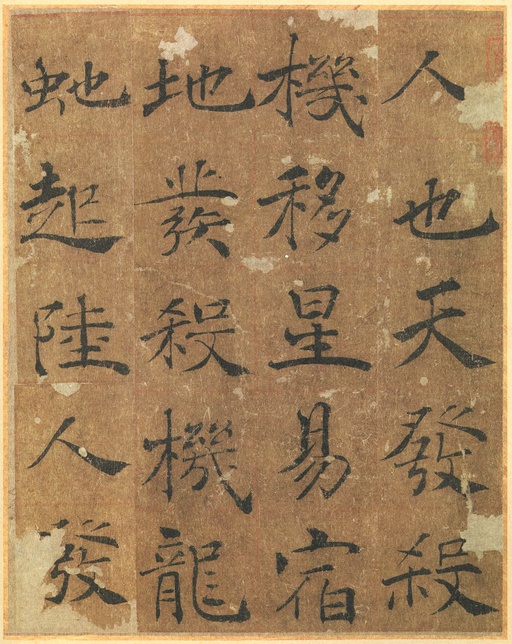 人也天發殺
機移星易宿
地發殺機龍
虵起陸人發